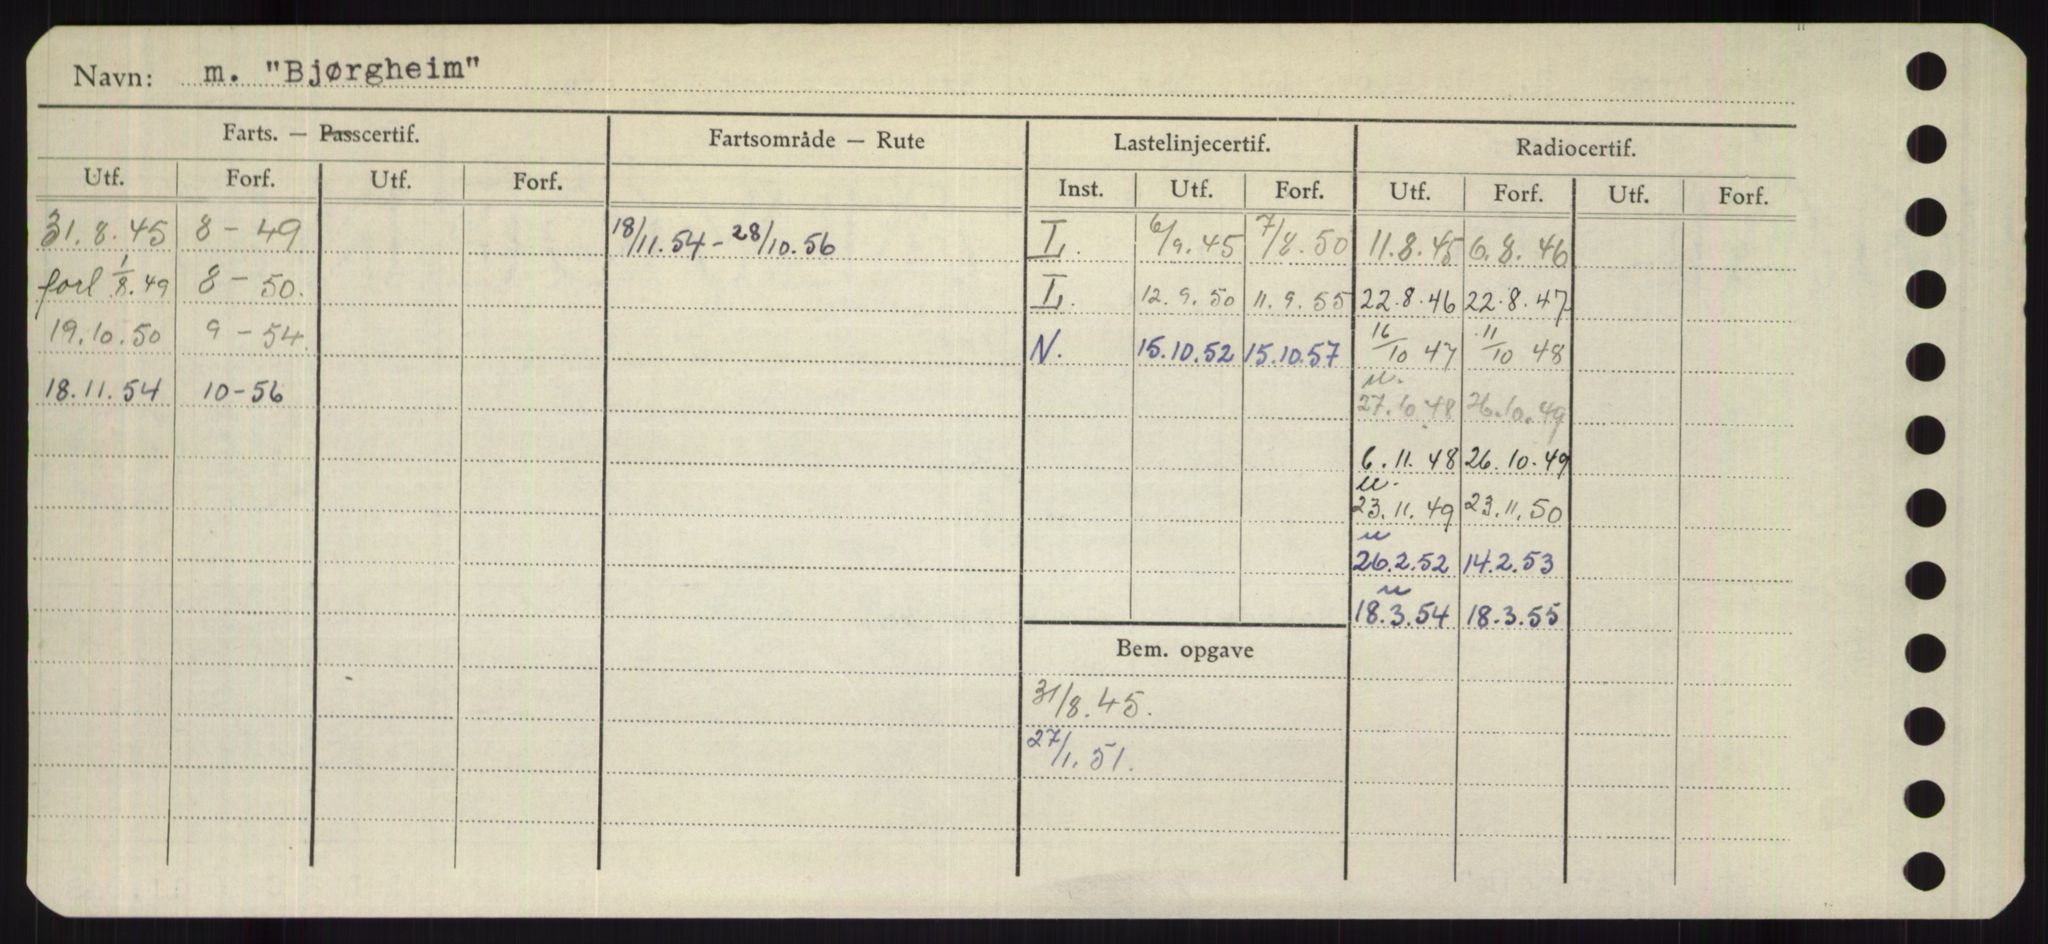 Navn: m. "Bjørgheim"
Farts. — Passcertif. Fartsområde — Rute Lastelinjecertif. Radiocertif.
Utf. Forf. Utf. Forf. Inst. Utf. Forf. Utf. Forf. Utf. Forf.
31.8.45 8-49 18/11.54-28/10.56 L. 6/9.45 7/8.50 11.8.45 6.8.46
forl 1/8.49 8-50. L. 12.9.50 11.9.55 22.8.46 22.8.47
19.10.50 9-54. N. 15.10.52 15.10.57 16/10 47 11/10 48
18.11.54 10-56 27.10.48 26.10.49
6.11.48 26.10.49
23.11.49 23.11.50
26.2.52 14.2.53
18.3.54 18.3.55
Bem. opgave
31/8.45.
27/1.51.